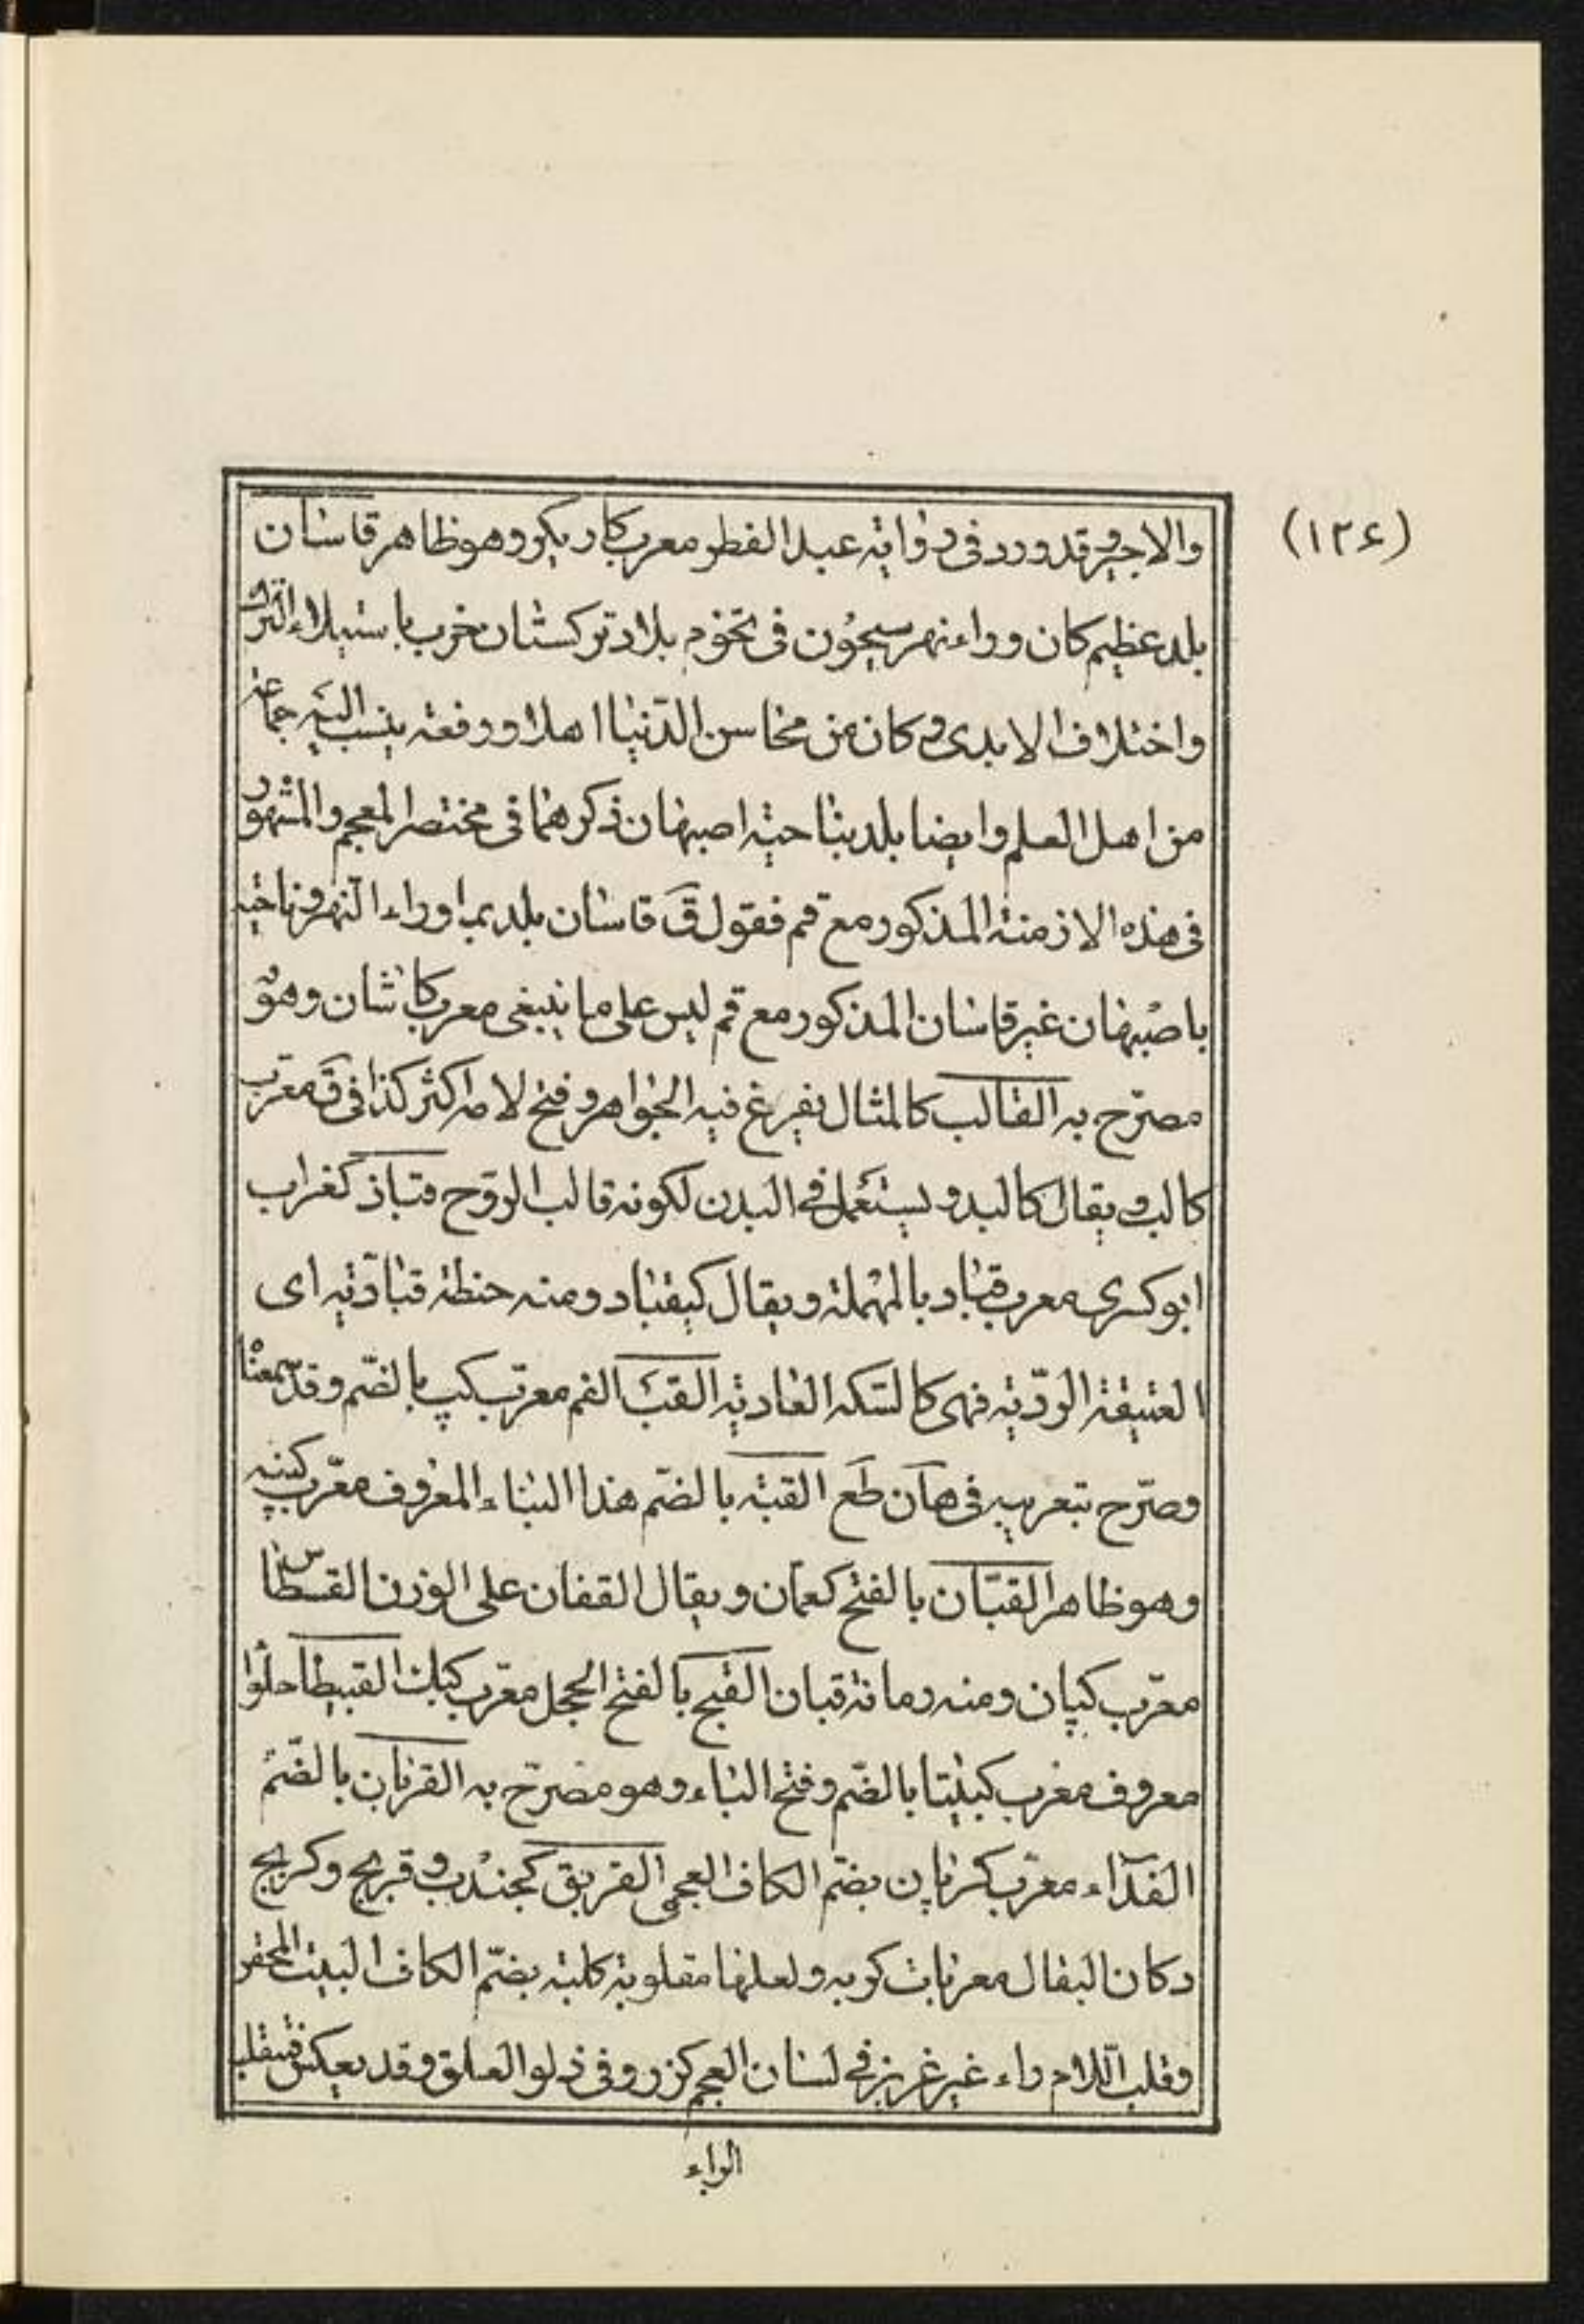 (١٢۶)
والاجير وقد ورد فى رواية عبد الفطر معرب كاريكر وهو ظاهر قاسان
بلد عظيم كان وراء نهر سيحون فى تخوم بلاد تركستان خرب باستيلاء الترك
واختلاف الايدى وكان من محاسن الدنيا اهلا ورفعة ينسب اليه جماعة
من اهل العلم وايضا بلد بناحية اصبهان ذكرهما فى مختصر المعجم والمشهور
فى هذه الازمنة المذكور مع قم فقول ق قاسان بلد بما وراء النهر وناحية
باصبهان غير قاسان المذكور مع قم ليس على ما ينبغى معرب كاشان وهو
مصرّح به القالب كالمثال يفرغ فيه الجواهر وفتح لامه اكثر كذا فى ق معرّب
كالب ويقال كالبد ويستعمل فى البدن لكونه قالب الروح قباذ كغراب
ابو كسرى معرب قباد بالمهملة ويقال كيقباد ومنه حنطة قباديّة اى
العتيقة الرديّة فهى كالسّكة العادية القبّ الفم معرّب كپ بالضّم وقد سمعنا
وصرّح بتعريبه فى هان طع القبة بالضّم هذا البناء المعروف معرّب كپنه
وهو ظاهر القبّان بالفتح كعمان ويقال القفان على الوزن القسطاس
معرّب كپان ومنه رمانة قبان القبج بالفتح الحجل معرّب كبك القبيطا حلوا
معروف معرب كبيتا بالضّم وفتح الباء وهو مصرّح به القربان بالضّم
الفداء معرّب كرپان بضّم الكاف العجمى القربق كجندب وقربج وكربج
دكان البقال معربات كربه ولعلها مقلوبة كلبة بضّم الكاف البيت المحقر
وقلب اللام راء غير عزيز فى لسان العجم كزرو فى زلو العلق وقد يعكس فيقلب
الراء